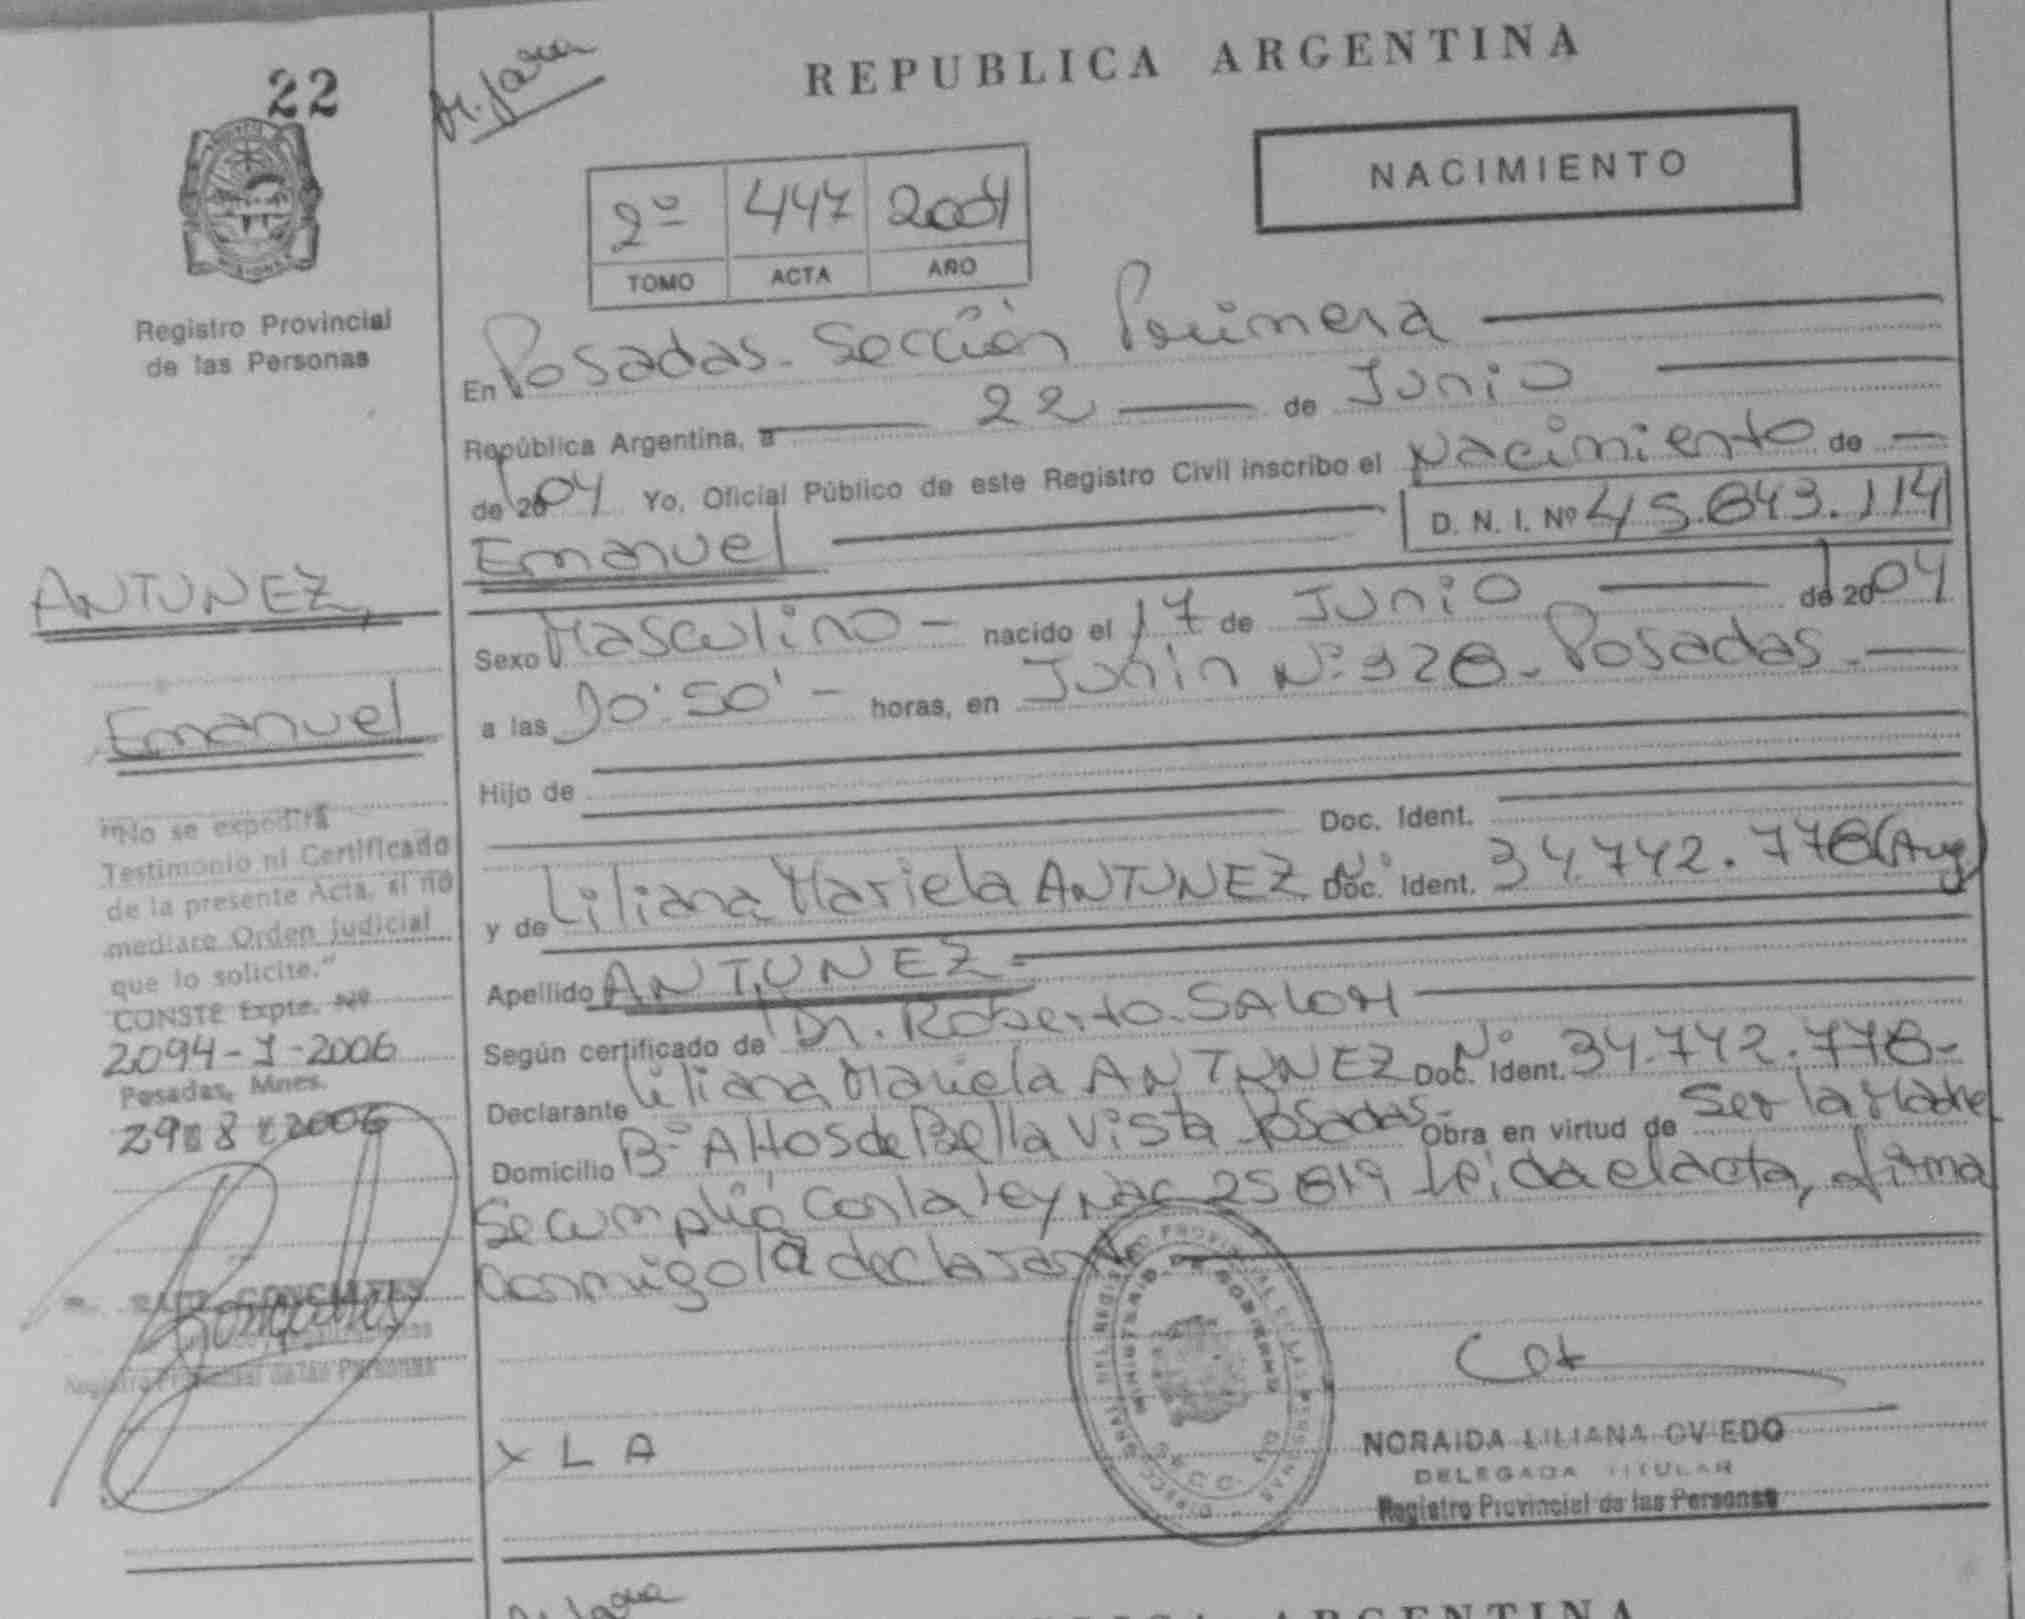 22
Registro Provincial
de las Personas
ANTUNEZ,
Emanuel
"No se expedirá
Testimonio ni Certificado
de la presente Acta, si no
mediare Orden Judicial
que lo solicite."
CONSTE Expte. Nº
2094-1-2006
Posadas, Mnes.
29 8 2006
GONZALEZ
Registro Provincial de las Personas
REPUBLICA ARGENTINA
NACIMIENTO
2º 447 2004
TOMO ACTA AÑO
En Posadas - Sección Primera
República Argentina, a 22 de Junio
de 2004 Yo, Oficial Público de este Registro Civil inscribo el Nacimiento de
Emanuel D. N. I. Nº 45.843.114
Sexo Masculino - nacido el 17 de Junio de 2004
a las 10:50' - horas, en Junin Nº 328 - Posadas -
Hijo de
Doc. Ident.
y de Liliana Mariela ANTUNEZ Nº Doc. Ident. 34.742.778 (Arg)
Apellido ANTUNEZ =
Según certificado de Dr. Roberto SALOM
Declarante Liliana Mariela ANTUNEZ Nº Doc. Ident. 34.742.778-
Domicilio Bº Altos de Bella Vista Posadas - Obra en virtud de Ser la Madre
Se cumplió con la ley Nac 25819 Leida el acta, firma
conmigo la declarante
DIRECC. GRAL. DEL REGISTRO PROVINCIAL DE LAS PERSONAS
MINISTERIO DE GOBIERNO
X L A
NORAIDA LILIANA OVIEDO
DELEGADA TITULAR
Registro Provincial de las Personas
ARGENTINA